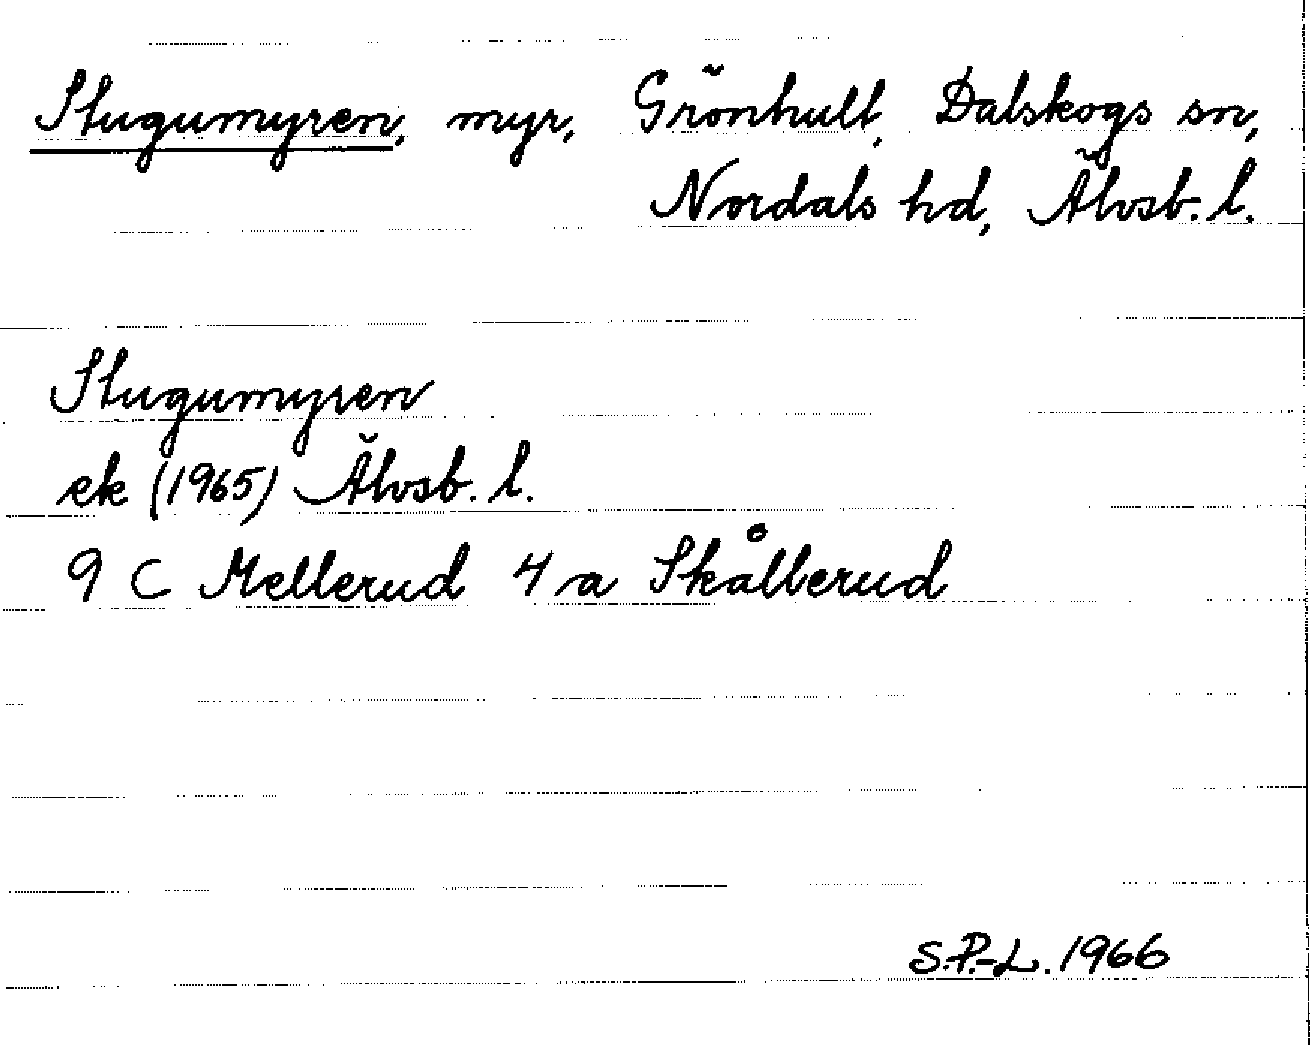 Stugumyren, myr, Grönhult, Dalskogs sn,
Nordals hd, Älvsb. l.
Stugumyren
ek (1965) Älvsb. l.
9 C Mellerud 4 a Skållerud
S.P.-L. 1966